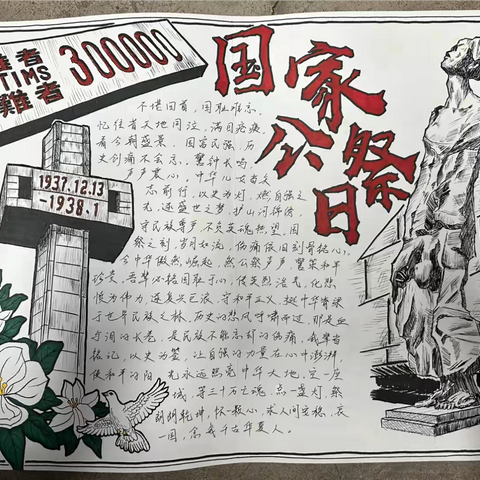 難者
TIMS
難者
300000
国家
公祭
日
1937.12.13
-1938.1
不堪回首，国耻难忘，
忆往昔天地同泣，满目疮痍，
看今朝盛景，国富民强，历
史创痛不会忘，警钟长鸣
声声震心。中华儿女当矢
志前行，以史为灯，燃自强之
光，逐盛世之梦，护山河锦绣，
守民族尊严，不负英魂热望，国
祭之刻，岁月如流，伤痛依旧刻骨铭心。
今中华傲然崛起，然公祭声声，警策和平
珍贵，吾辈必铭国耻于心，传英烈浩气，化悲
恨为伟力，逐复兴巨浪，守和平正义，挺中华脊梁
于世界民族之林，历史的悲风呼啸而过，那是血
与泪的长卷，是民族不能忘却的伤痛，我辈当
铭记，以史为鉴，让自强的力量在心中澎湃，
使和平的阳光永远照亮中华大地，定一座
城，等三十万亡魂，点一盏灯，祭
朗朗乾坤，怀一颗心，求人间安稳，哀
一国，念我千古华夏人。